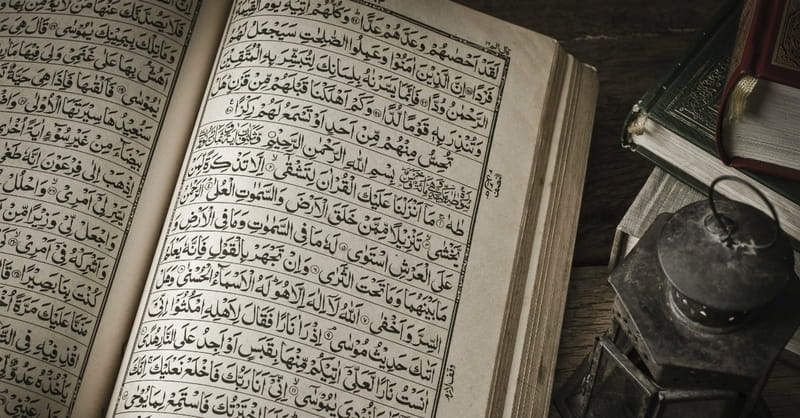 لَقَدْ اَحْصٰىهُمْ وَعَدَّهُمْ عَدًّا ۝ وَكُلُّهُمْ اٰتِيْهِ يَوْمَ الْقِيٰمَةِ
فَرْدًا ۝ اِنَّ الَّذِيْنَ اٰمَنُوْا وَعَمِلُوا الصّٰلِحٰتِ سَيَجْعَلُ لَهُمُ
الرَّحْمٰنُ وُدًّا ۝ فَاِنَّمَا يَسَّرْنٰهُ بِلِسَانِكَ لِتُبَشِّرَ بِهِ الْمُتَّقِيْنَ
وَتُنْذِرَ بِهٖ قَوْمًا لُّدًّا ۝ وَكَمْ اَهْلَكْنَا قَبْلَهُمْ مِّنْ قَرْنٍ هَلْ
تُحِسُّ مِنْهُمْ مِّنْ اَحَدٍ اَوْ تَسْمَعُ لَهُمْ رِكْزًا ۝
بِسْمِ اللّٰهِ الرَّحْمٰنِ الرَّحِيْمِ
طٰهٰ ۝ مَآ اَنْزَلْنَا عَلَيْكَ الْقُرْاٰنَ لِتَشْقٰى ۝ اِلَّا تَذْكِرَةً لِّمَنْ
يَّخْشٰى ۝ تَنْزِيْلًا مِّمَّنْ خَلَقَ الْاَرْضَ وَالسَّمٰوٰتِ الْعُلٰى ۝ اَلرَّحْمٰنُ
عَلَى الْعَرْشِ اسْتَوٰى ۝ لَهٗ مَا فِى السَّمٰوٰتِ وَمَا فِى الْاَرْضِ وَ
مَا بَيْنَهُمَا وَمَا تَحْتَ الثَّرٰى ۝ وَاِنْ تَجْهَرْ بِالْقَوْلِ فَاِنَّهٗ يَعْلَمُ
السِّرَّ وَاَخْفٰى ۝ اَللّٰهُ لَآ اِلٰهَ اِلَّا هُوَ لَهُ الْاَسْمَآءُ الْحُسْنٰى ۝ وَهَلْ
اَتٰىكَ حَدِيْثُ مُوْسٰى ۝ اِذْ رَاٰ نَارًا فَقَالَ لِاَهْلِهِ امْكُثُوْٓا اِنِّىْٓ
اٰنَسْتُ نَارًا لَّعَلِّىْٓ اٰتِيْكُمْ مِّنْهَا بِقَبَسٍ اَوْ اَجِدُ عَلَى النَّارِ هُدًى
نُوْدِىَ يٰمُوْسٰى ۝ اِنِّىْٓ اَنَا رَبُّكَ فَاخْلَعْ نَعْلَيْكَ اِنَّكَ
اخْتَرْتُكَ فَاسْتَمِعْ لِمَا يُوْحٰى
وَمَا تِلْكَ بِيَمِيْنِكَ يٰمُوْسٰى ۝ قَالَ هِىَ
وَاَهُشُّ بِهَا عَلٰى غَنَمِىْ وَلِىَ فِيْهَا
يٰمُوْسٰى ۝ فَاَلْقٰهَا فَاِذَا هِىَ حَيَّةٌ
سَنُعِيْدُهَا سِيْرَتَهَا الْاُوْلٰى ۝
بَيْضَآءَ مِنْ غَيْرِ سُوْٓءٍ اٰيَةً اُخْرٰى
اِذْهَبْ اِلٰى فِرْعَوْنَ اِنَّهٗ طَغٰى
يَسِّرْ لِىْٓ اَمْرِىْ ۝ وَاحْلُلْ
وَاجْعَلْ لِّىْ وَزِيْرًا مِّنْ
وَاَشْرِكْهُ فِىْٓ اَمْرِىْ
كُنْتَ بِنَا بَصِيْرًا ۝ قَالَ
مَنَنَّا عَلَيْكَ مَرَّةً
اقْذِفِيْهِ فِى
يَاْخُذْهُ عَدُوٌّ